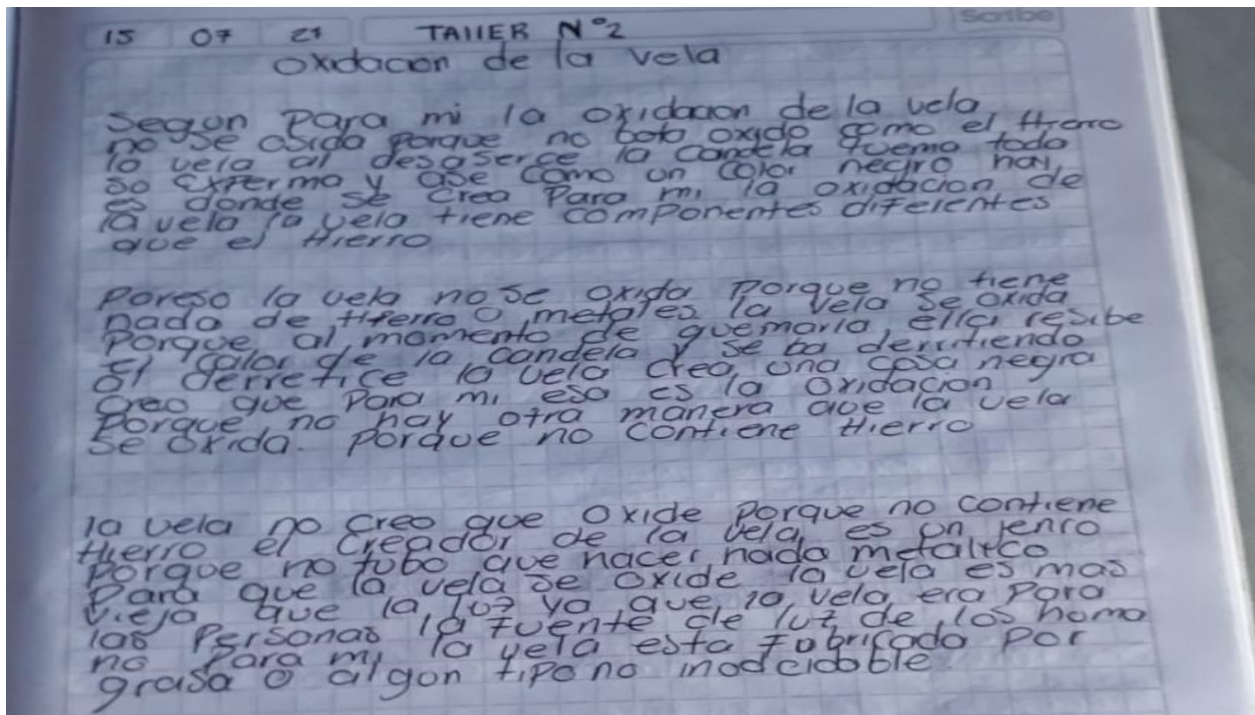 Scribe
15 07 21 TAllER N°2
Oxidacion de la vela
Segun Para mi la oxidacion de la vela
no se osida porque no boto oxido como el Hierro
la vela al desaserce la candela quema todo
so experma y ase como un color negro hay
es donde se crea Para mi la oxidacion de
la vela la vela tiene componentes diferentes
que el Hierro
Poreso la vela no se oxida Porque no tiene
nada de Hierro o metales la vela se oxida
Porque al momento de quemarla, ella resibe
el calor de la candela y se ba derritiendo
al derretice la vela crea una cosa negra
creo que para mi esa es la oxidacion
Porque no hay otra manera que la vela
se oxida. Porque no contiene Hierro
la vela no creo que oxide Porque no contiene
Hierro el creador de la vela es un jenro
porque no tubo que hacer nada metalico
Para que la vela se oxide la vela es mas
vieja que la luz ya que la vela era para
las Personas la Fuente de luz de los homa
no Para mi la vela esta Fabricada Por
grasa o algon tipo no